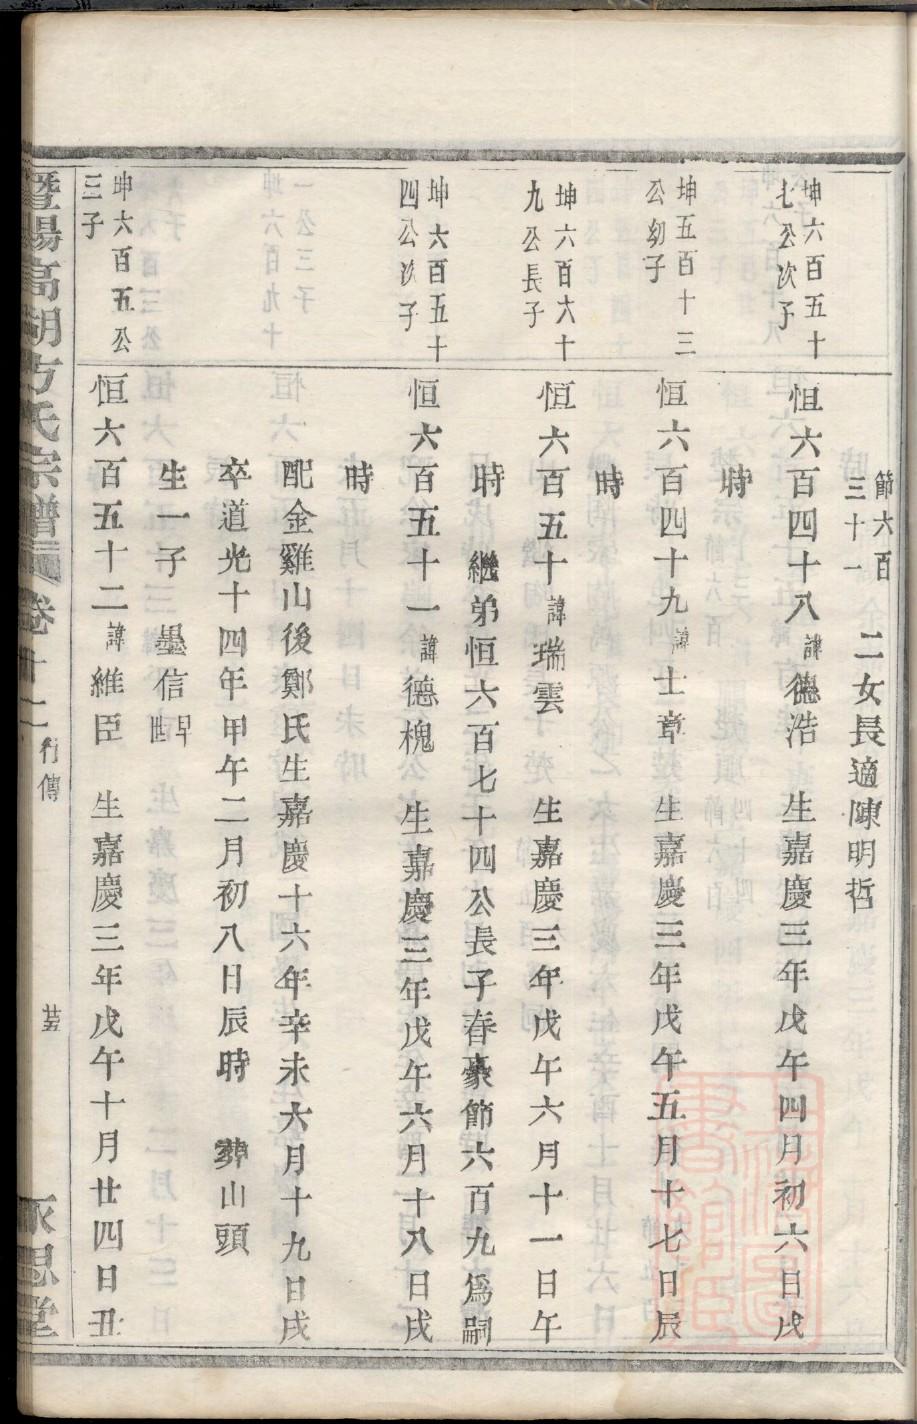 節六百三十一 二女長適陳明哲
坤六百五十七公次子
恒六百四十八諱德浩 生嘉慶三年戊午四月初六日戌
時
坤五百十三公幼子
恒六百四十九諱士章 生嘉慶三年戊午五月十七日辰
時
坤六百六十九公長子
恒六百五十諱瑞雲 生嘉慶三年戊午六月十一日午
時 繼弟恒六百七十四公長子春豪節六百九爲嗣
坤六百五十四公次子
恒六百五十一諱德槐 生嘉慶三年戊午六月十八日戌
時
配金雞山後鄭氏生嘉慶十六年辛未六月十九日戌
卒道光十四年甲午二月初八日辰時 葬山頭
生一子 墨信
坤六百五公三子
恒六百五十二諱維臣 生嘉慶三年戊午十月廿四日丑
暨陽高湖方氏宗譜 卷十二 行傳 永思堂